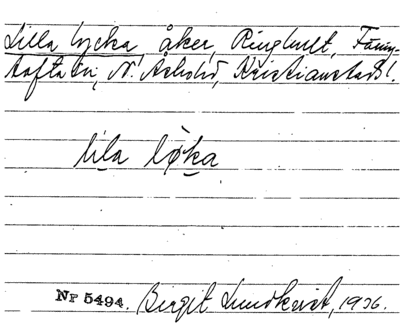 Lilla lycka, åker, Ringhult, Färing-
tofta sn, N. Åsbohd, Kristianstads l.
lila løka
Nr 5494. Birgit Lundkvist, 1936.